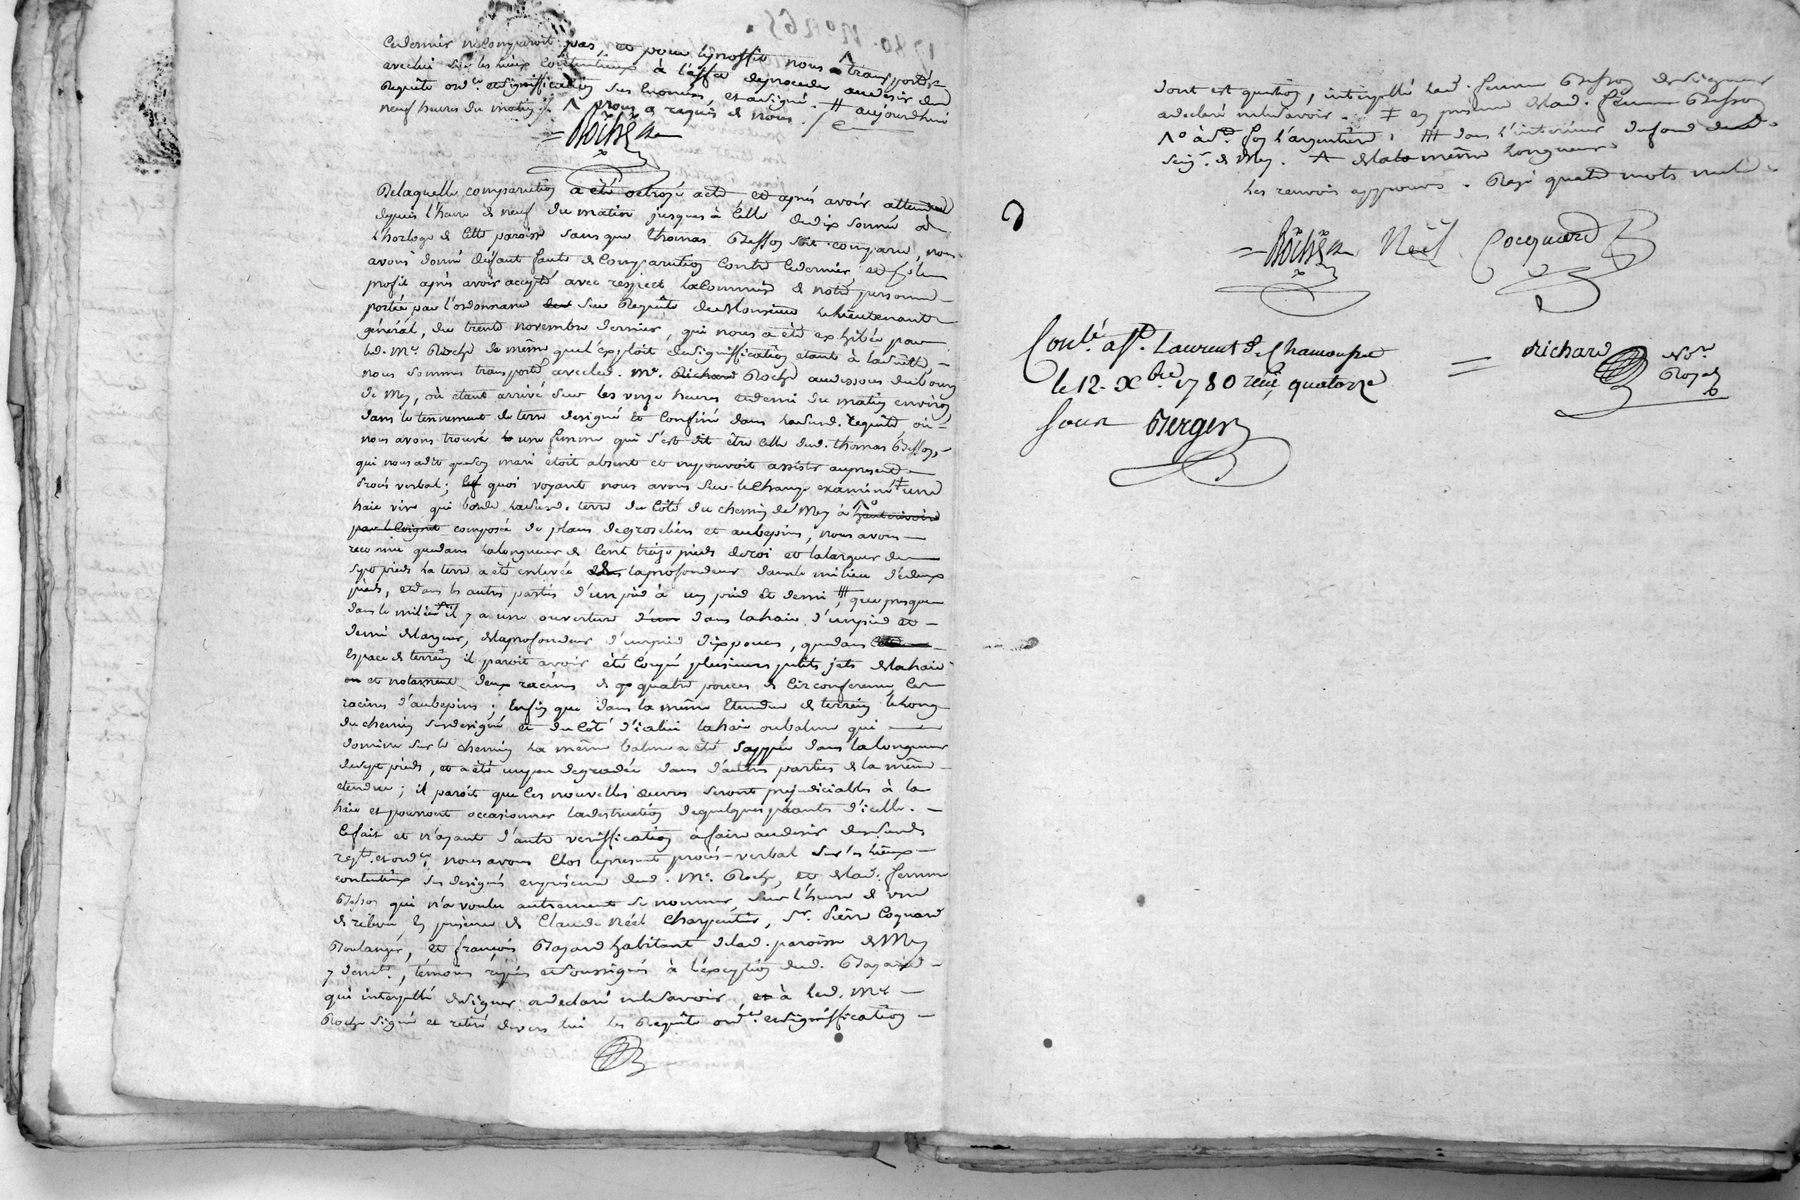 ce dernier ne comparoit pas, et pour le proffit nous Λ transporter
avec lui sur les lieux contentieux à l'effet de proceder au desir des
Requête ord.ce et signiffication sus enoncées, et a signé. # aujourd'hui
neuf heures du matin Λ nous a requis de nous
= Roche
De laquelle comparution a été octroyé acte, et après avoir attendu
depuis l'heure de neuf du matin jusques à celle de dix sonnée à
l'horloge de cette paroisse sans que Thomas Besson soit comparu, nous
avons donné deffaut faute de comparution contre ce dernier et pour le
profit après avoir accepté avec respect la commission de notre personne
portée par l'ordonnance sur Requête de Monsieur le Lieutenant
général, du trente novembre dernier, qui nous a été exhibée par
led. Me. Roche de même que l'exploit de signiffication etant à la suitte,
nous sommes transporté avec led. Me. Richard Roche au dessous du bourg
de Mey, où étant arrivé sur les onze heures et demi du matin environ
dans le tennement de terre designé et confiné dans la susd. requête, où
nous avons trouvé une femme qui s'est dit être celle dud. thomas Besson,
qui nous a dit que son mari etoit absent et ne pouvoit assister au present
procès verbal; quoi voyant nous avons sur le champ examiné ‡ une
haie vive qui borde la susd. terre du côté du chemin de Mey à Λo
composée de plans de groseliers et aubepins, nous avons
reconnu que dans la longueur de cent treize pieds de roi et la largeur de
sept pieds la terre a été enlevée de la profondeur dans le milieu de deux
pieds, et dans les autres parties d'un pied à un pied et demi #, que presque
dans le milieu il y a une ouverture dans la haie, d'un pied et
demi de largeur, de la profondeur d'un pied dix pouces, que dans
espace de terrein il paroit avoir été coupé plusieurs petits jets de la haie
et notament deux racines de quatre pouces de circonference, les
racines d'aubepins; enfin que dans la même etendue de terrein le long
du chemin susdesigné et du côté d'icelui la haie ou balme qui
domine sur le chemin la même balme a été sappée dans la longueur
de sept pieds, et a été un peu degradée dans d'autres parties de la même
etendue; il paroit que ces nouvelles œuvres seront prejudiciables à la
haie et pourront occasionner la destruction de quelques plants d'icelle.
Ce fait et n'ayant d'autre veriffication à faire au desir des susd.
reqt. et ord.ce, nous avons clos le present procès-verbal sur les lieux
contentieux susdesignés en presence dud. Me. Roche, et de lad. femme
Besson qui n'a voulu autrement se nommer, sur l'heure de une
de relevée en presence de Claude Néel charpentier, Sr. Pierre Coquard
Boulanger, et françois Bazard habitant de lad. paroisse de Mey
y demt., témoins requis et soussignés à l'exception dud. Bazard
qui interpellé de signer a declaré ne le savoir, et à led. Me.
Roche signé et retiré devers lui les Requête ord.ce et signiffication
dont est question, interpellé lad. femme Besson de signer
a declaré ne le savoir. ‡ en présence de lad. femme Besson
Λo à st. foy l'argentière, # dans l'interieur du fond dud.
seigr. de Mey. Λ de la même longueur.
Les renvois approuvés. Rayé quatre mots nuls.
= Roche Néel Cocquard
Conlé. a St. Laurent de Chamousset
le 12. Xbre 1780 reçu quatorze
sous Berger
= Richard Nore.
Royal